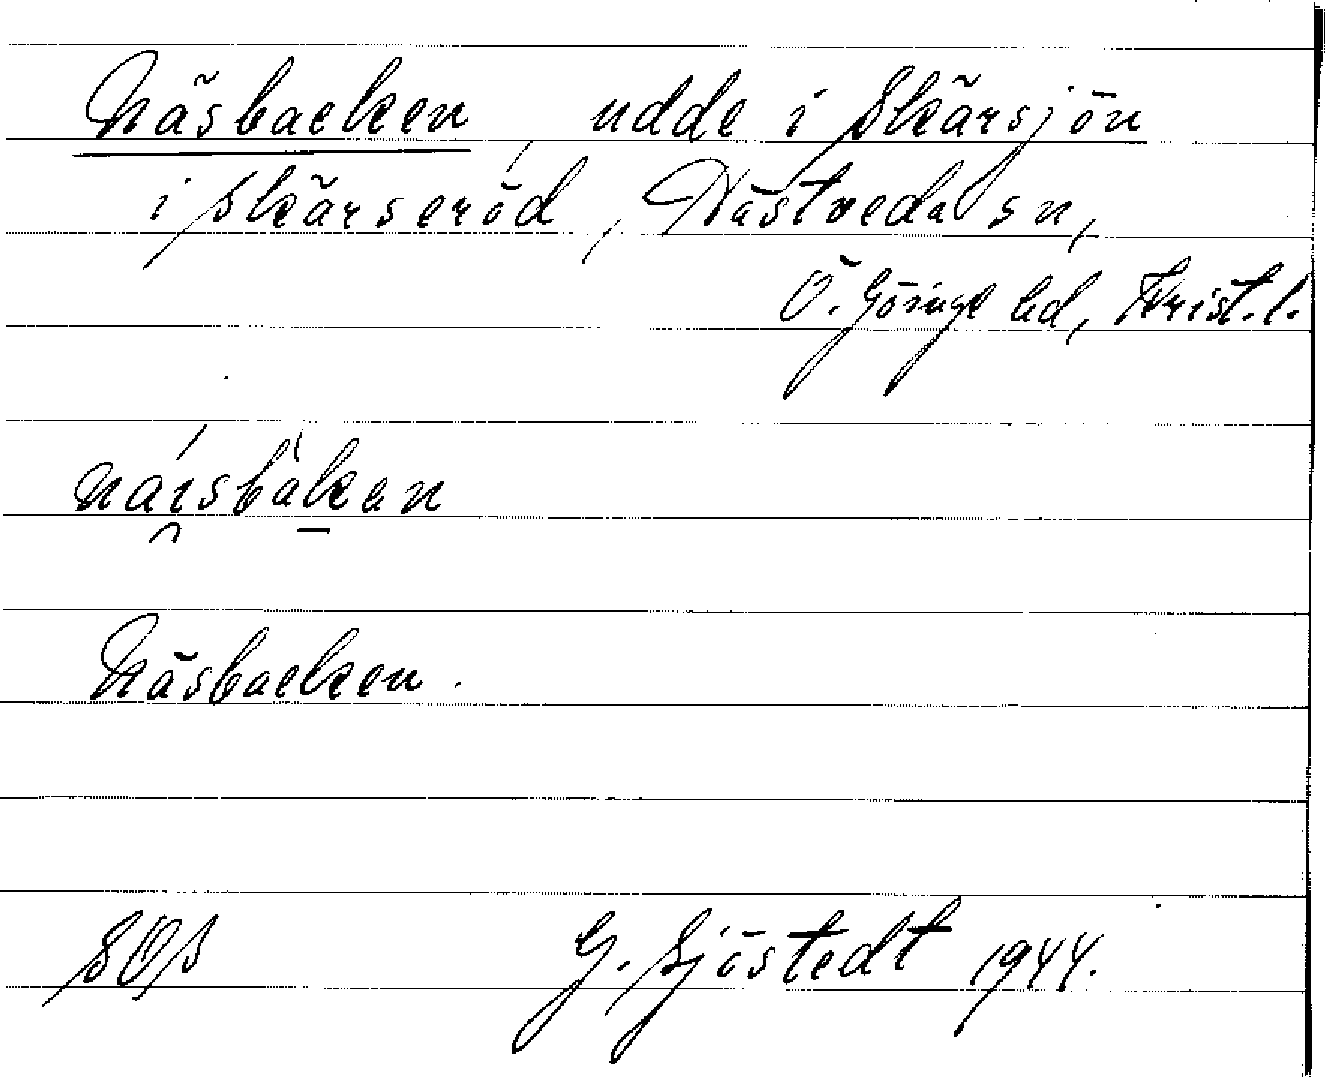 Näsbacken udde i Skärsjön
i Skärseröd, Västveda sn,
Ö. Göinge hd, Krist. l.
Näsbacken.
SOS G. Sjöstedt 1944.